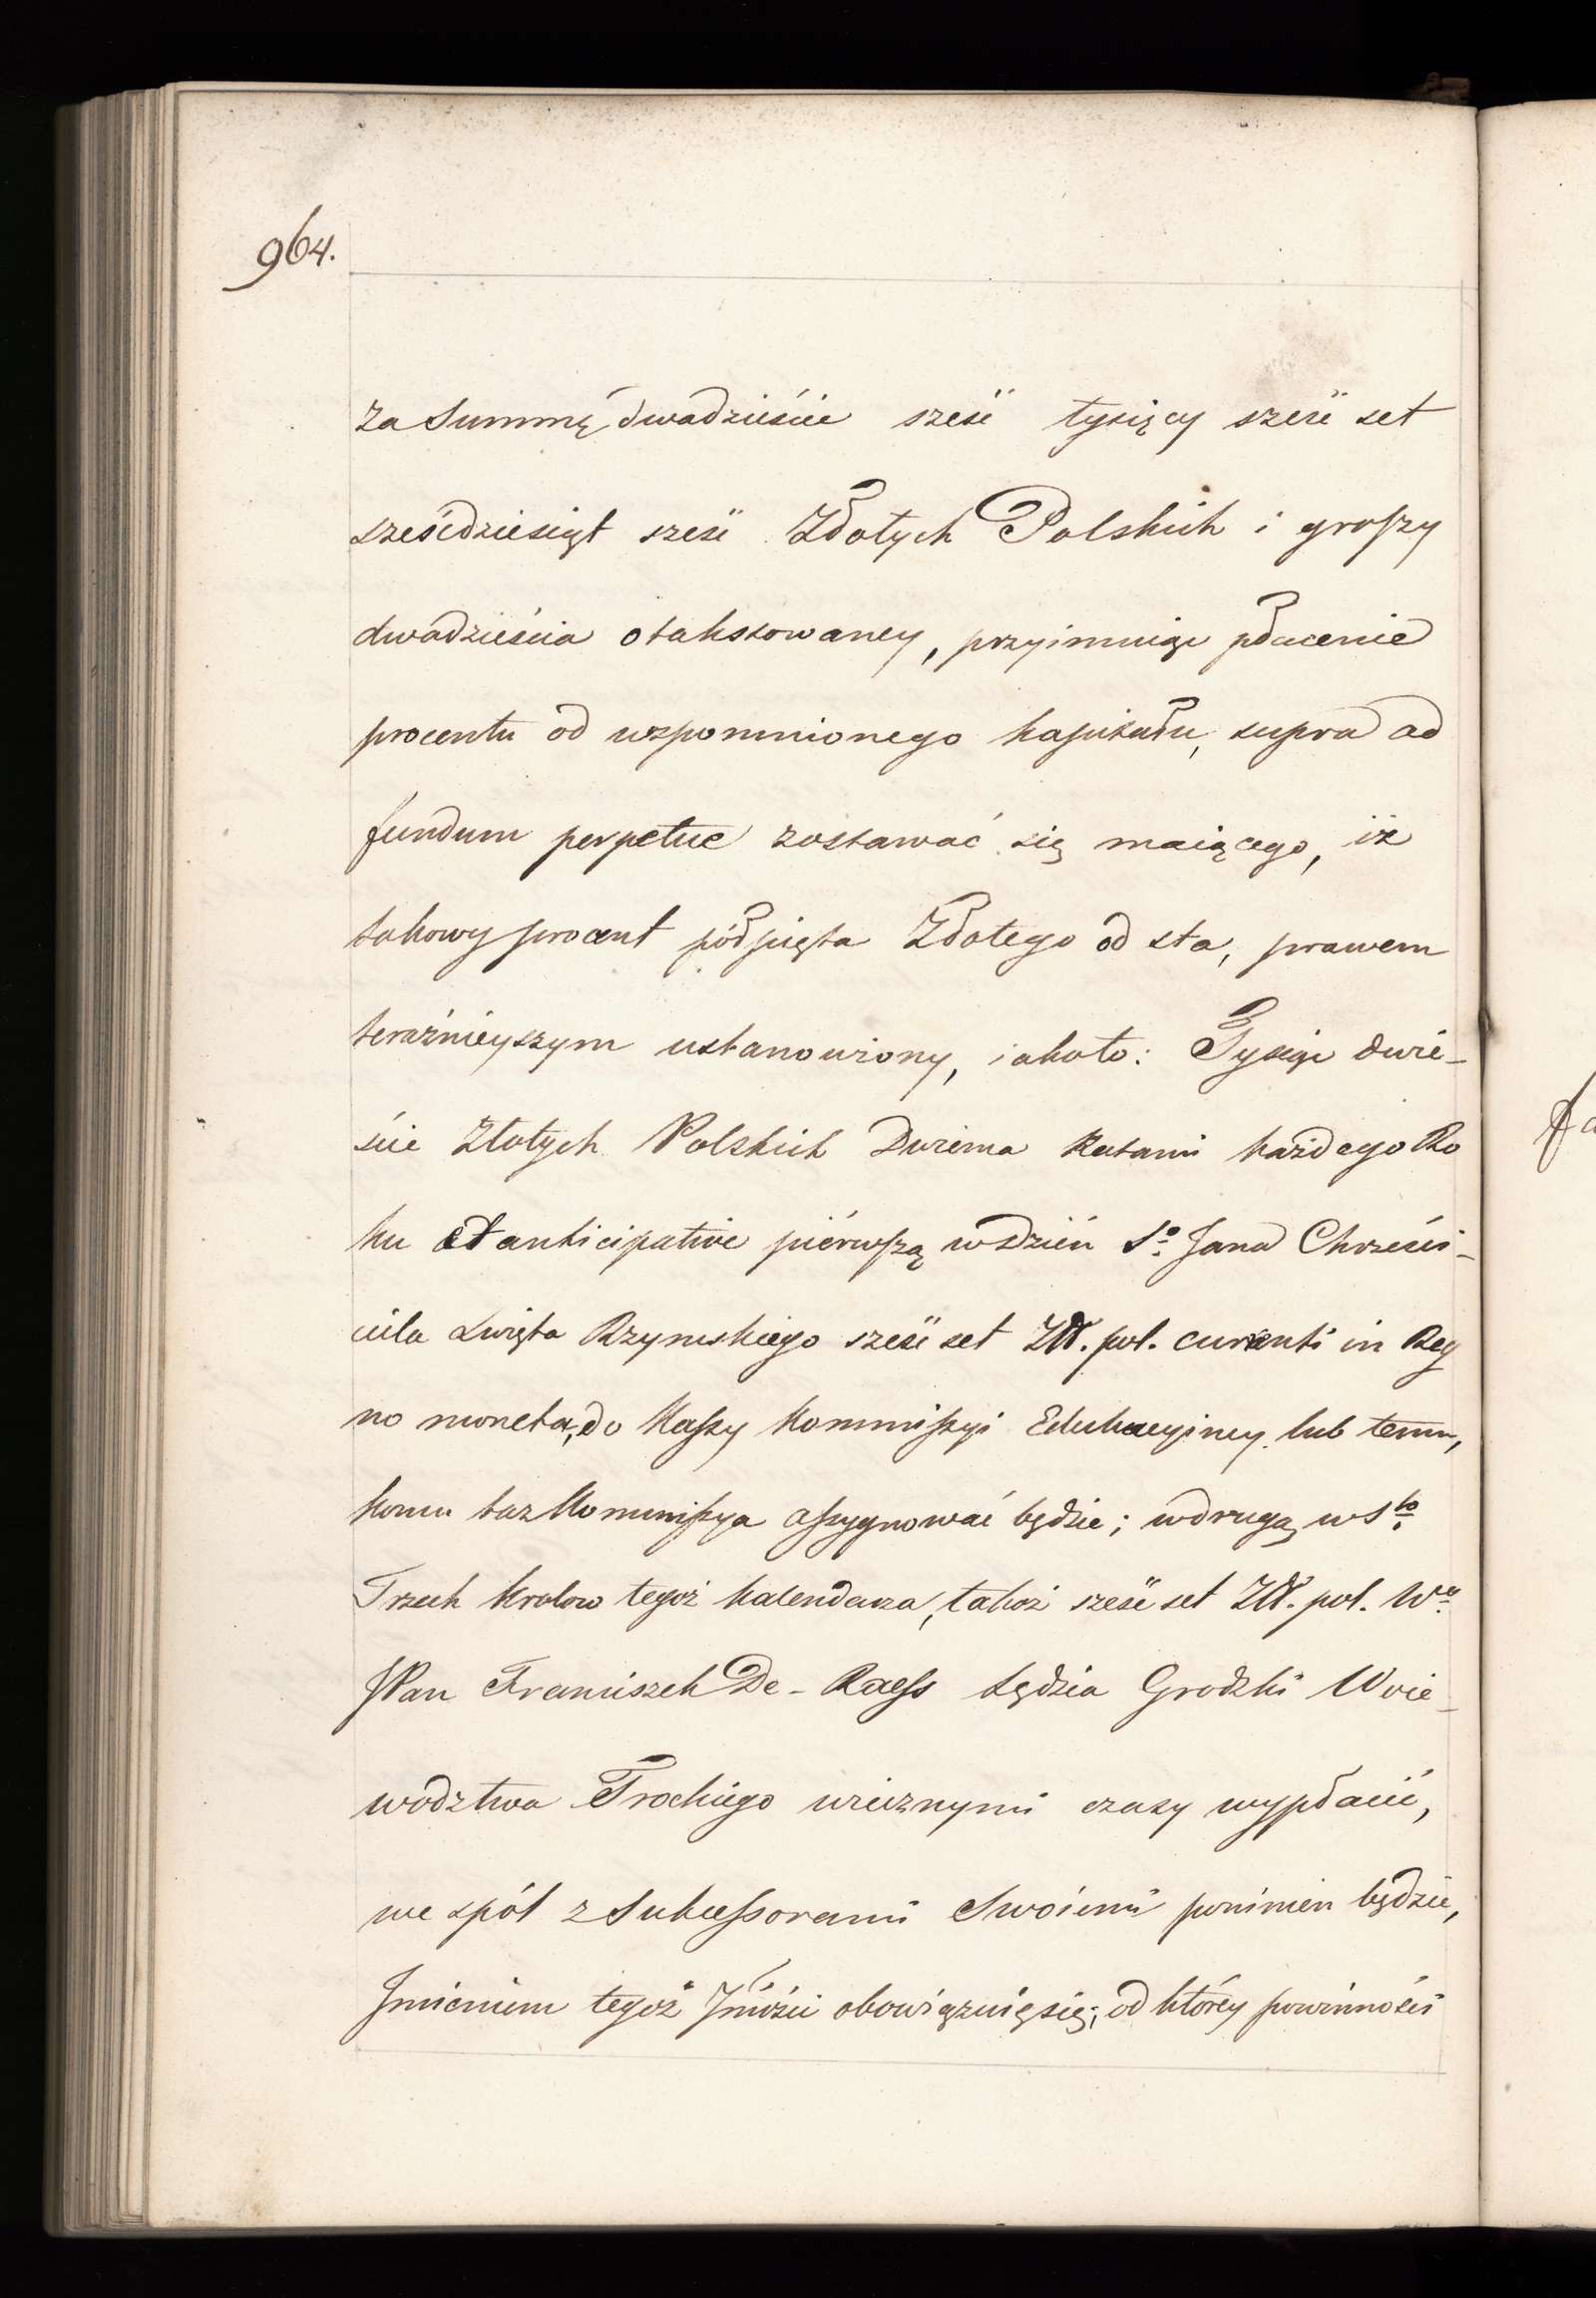 964.
za Summę dwadzieście sześć tysięcy sześć set
sześćdziesiąt sześć Złotych Polskich i groszy
dwadzieścia otaksowaney, przyimuiąc płacenie
procentu od wspomnionego kapitału, supra ad
fundum perpetue zostawać się maiącego, iż
takowy procent półpięta Złotego od sta, prawem
teraźnieyszym ustanowiony, iakoto: Tysiąc dwie-
ście Złotych Polskich Dwiema Ratami każdego Ro
ku et anticipative piérwszą w dzień So Jana Chrześci-
ciela Święta Rzymskiego sześć set Złł. pol. curenti in Reg
no moneta, do Kassy Kommissyi Edukacyiney lub temu,
komu taz Kommissya assygnować będzie; w drugą w Sto
Trzech Krolow tegoż kalendarza, takoż sześć set Złł. pol. Wy
JPan Franciszek De-Raess Sędzia Grodzki Woie-
wodztwa Trockiego wiecznymi czasy wypłacić,
we spół z Sukcessorami Swoiemi powinien będzie,
Jmieniem tegoż Jmości obowiązuię się; od którey powinności